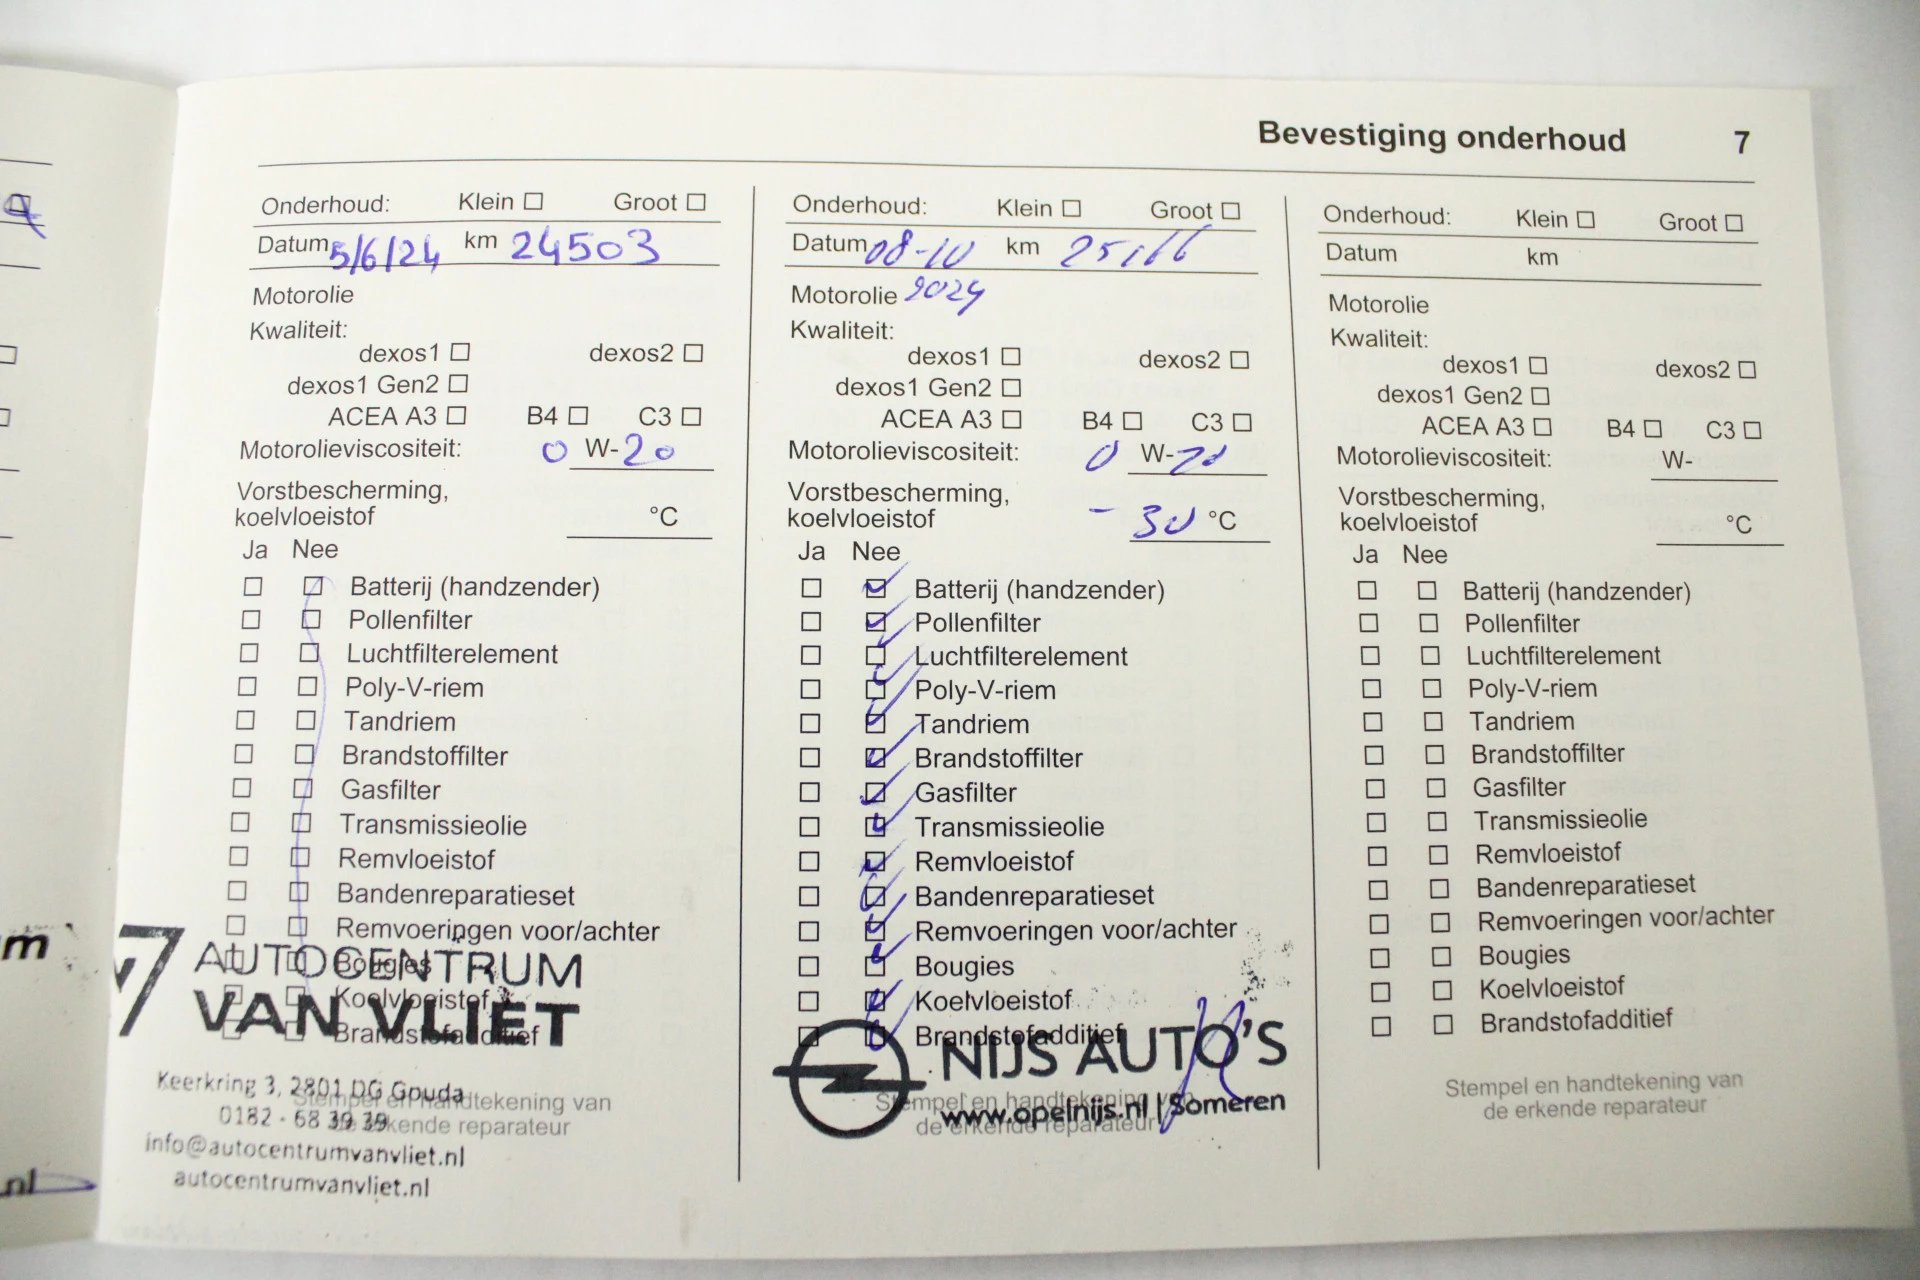 Bevestiging onderhoud 7
Onderhoud: Klein Groot
Datum 5/6/24 km 24503
Motorolie
Kwaliteit:
dexos1 dexos2
dexos1 Gen2
ACEA A3 B4 C3
Motorolieviscositeit: 0 W-20
Vorstbescherming,
koelvloeistof °C
Ja Nee
Batterij (handzender)
Pollenfilter
Luchtfilterelement
Poly-V-riem
Tandriem
Brandstoffilter
Gasfilter
Transmissieolie
Remvloeistof
Bandenreparatieset
Remvoeringen voor/achter
Bougies
Koelvloeistof
Brandstofadditief
AUTOCENTRUM
VAN VLIET
Keerkring 3, 2801 DG Gouda
0182 - 68 39 39
info@autocentrumvanvliet.nl
autocentrumvanvliet.nl
Stempel en handtekening van
de erkende reparateur
Onderhoud: Klein Groot
Datum 08-10 km 25116
Motorolie 2024
Kwaliteit:
dexos1 dexos2
dexos1 Gen2
ACEA A3 B4 C3
Motorolieviscositeit: 0 W-20
Vorstbescherming,
koelvloeistof -30 °C
Ja Nee
Batterij (handzender)
Pollenfilter
Luchtfilterelement
Poly-V-riem
Tandriem
Brandstoffilter
Gasfilter
Transmissieolie
Remvloeistof
Bandenreparatieset
Remvoeringen voor/achter
Bougies
Koelvloeistof
Brandstofadditief
NIJS AUTO'S
www.opelnijs.nl | Someren
Stempel en handtekening van
de erkende reparateur
Onderhoud: Klein Groot
Datum km
Motorolie
Kwaliteit:
dexos1 dexos2
dexos1 Gen2
ACEA A3 B4 C3
Motorolieviscositeit: W-
Vorstbescherming,
koelvloeistof °C
Ja Nee
Batterij (handzender)
Pollenfilter
Luchtfilterelement
Poly-V-riem
Tandriem
Brandstoffilter
Gasfilter
Transmissieolie
Remvloeistof
Bandenreparatieset
Remvoeringen voor/achter
Bougies
Koelvloeistof
Brandstofadditief
Stempel en handtekening van
de erkende reparateur